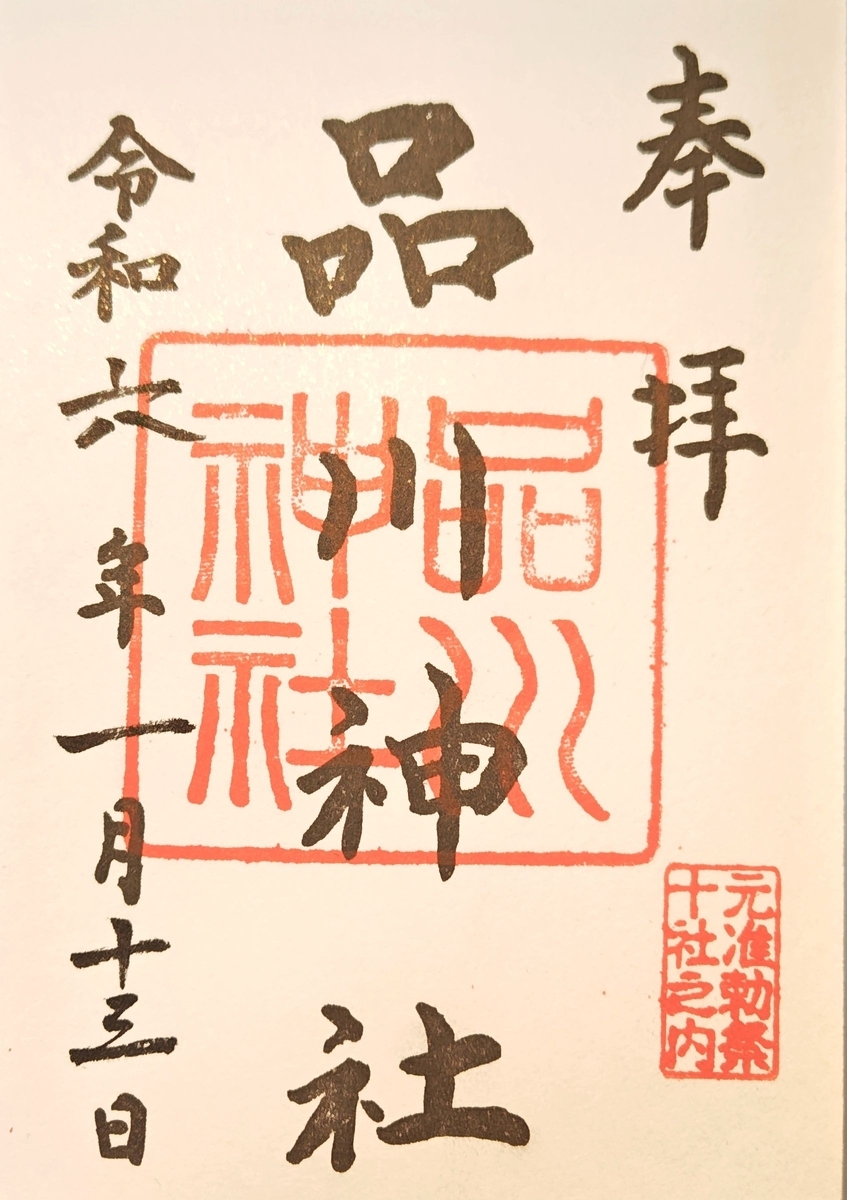 奉拝
元准勅祭
十社之内
品川神社
品川
神社
令和六年一月十三日